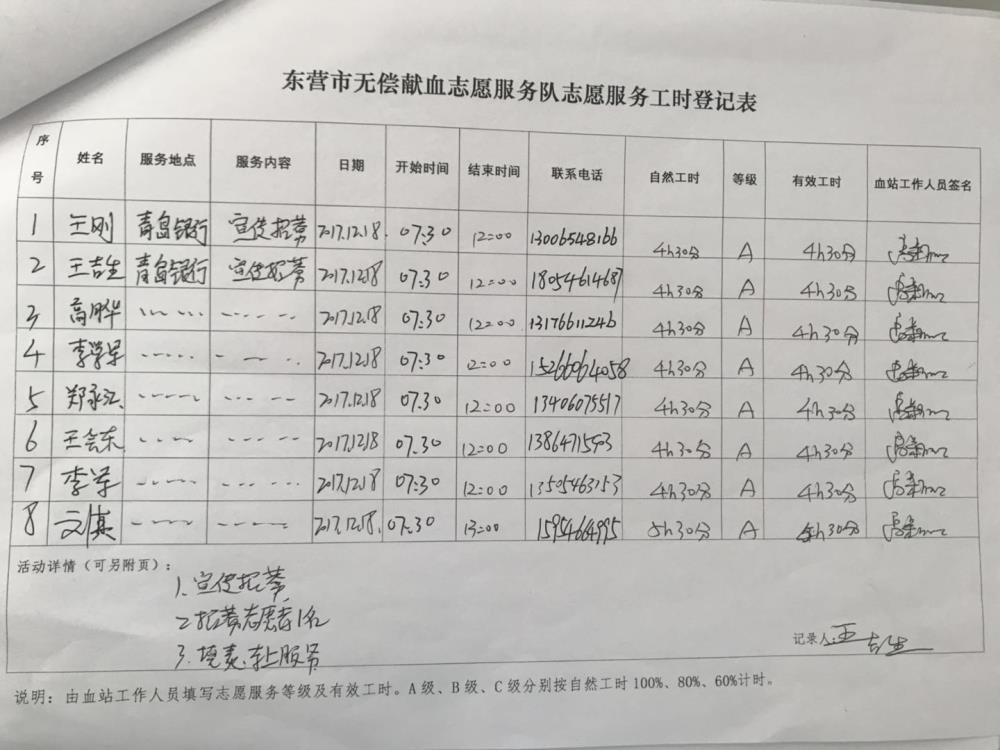 东营市无偿献血志愿服务队志愿服务工时登记表
序号 姓名 服务地点 服务内容 日期 开始时间 结束时间 联系电话 自然工时 等级 有效工时 血站工作人员签名
1 王刚 青岛银行 宣传招募 2017.12.18. 07:30 12=00 13006548166 4h30分 A 4h30分
2 王吉生 青岛银行 宣传招募 2017.12.18 07:30 12=00 18054614687 4h30分 A 4h30分
3 高 华 2017.12.18 07:30 12=00 13176611246 4h30分 A 4h30分
4 李学军 2017.12.18 07:30 12=00 15266064058 4h30分 A 4h30分
5 郑永江 2017.12.18 07.30 12=00 13406075517 4h30分 A 4h30分
6 王会东 2017.12.18 07.30 12=00 13864715903 4h30分 A 4h30分
7 李军 2017.12.18 07:30 12=00 13505463153 4h30分 A 4h30分
8 文 2017.12.18. 07:30 13=00 15954664995 5h30分 A 5h30分
活动详情（可另附页）：
1.宣传招募
2.招募志愿者1名
3.填表.车上服务
记录人:王吉生
说明：由血站工作人员填写志愿服务等级及有效工时。A级、B级、C级分别按自然工时100%、80%、60%计时。